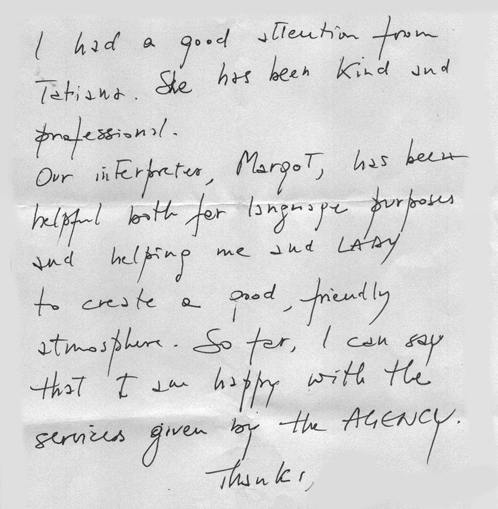 I had a good attention from
Tatiana. She has been kind and
professional.
Our interpreter, Margot, has been
helpful both for language purposes
and helping me and LADY
to create a good, friendly
atmosphere. So far, I can say
that I am happy with the
services given by the AGENCY.
Thanks,